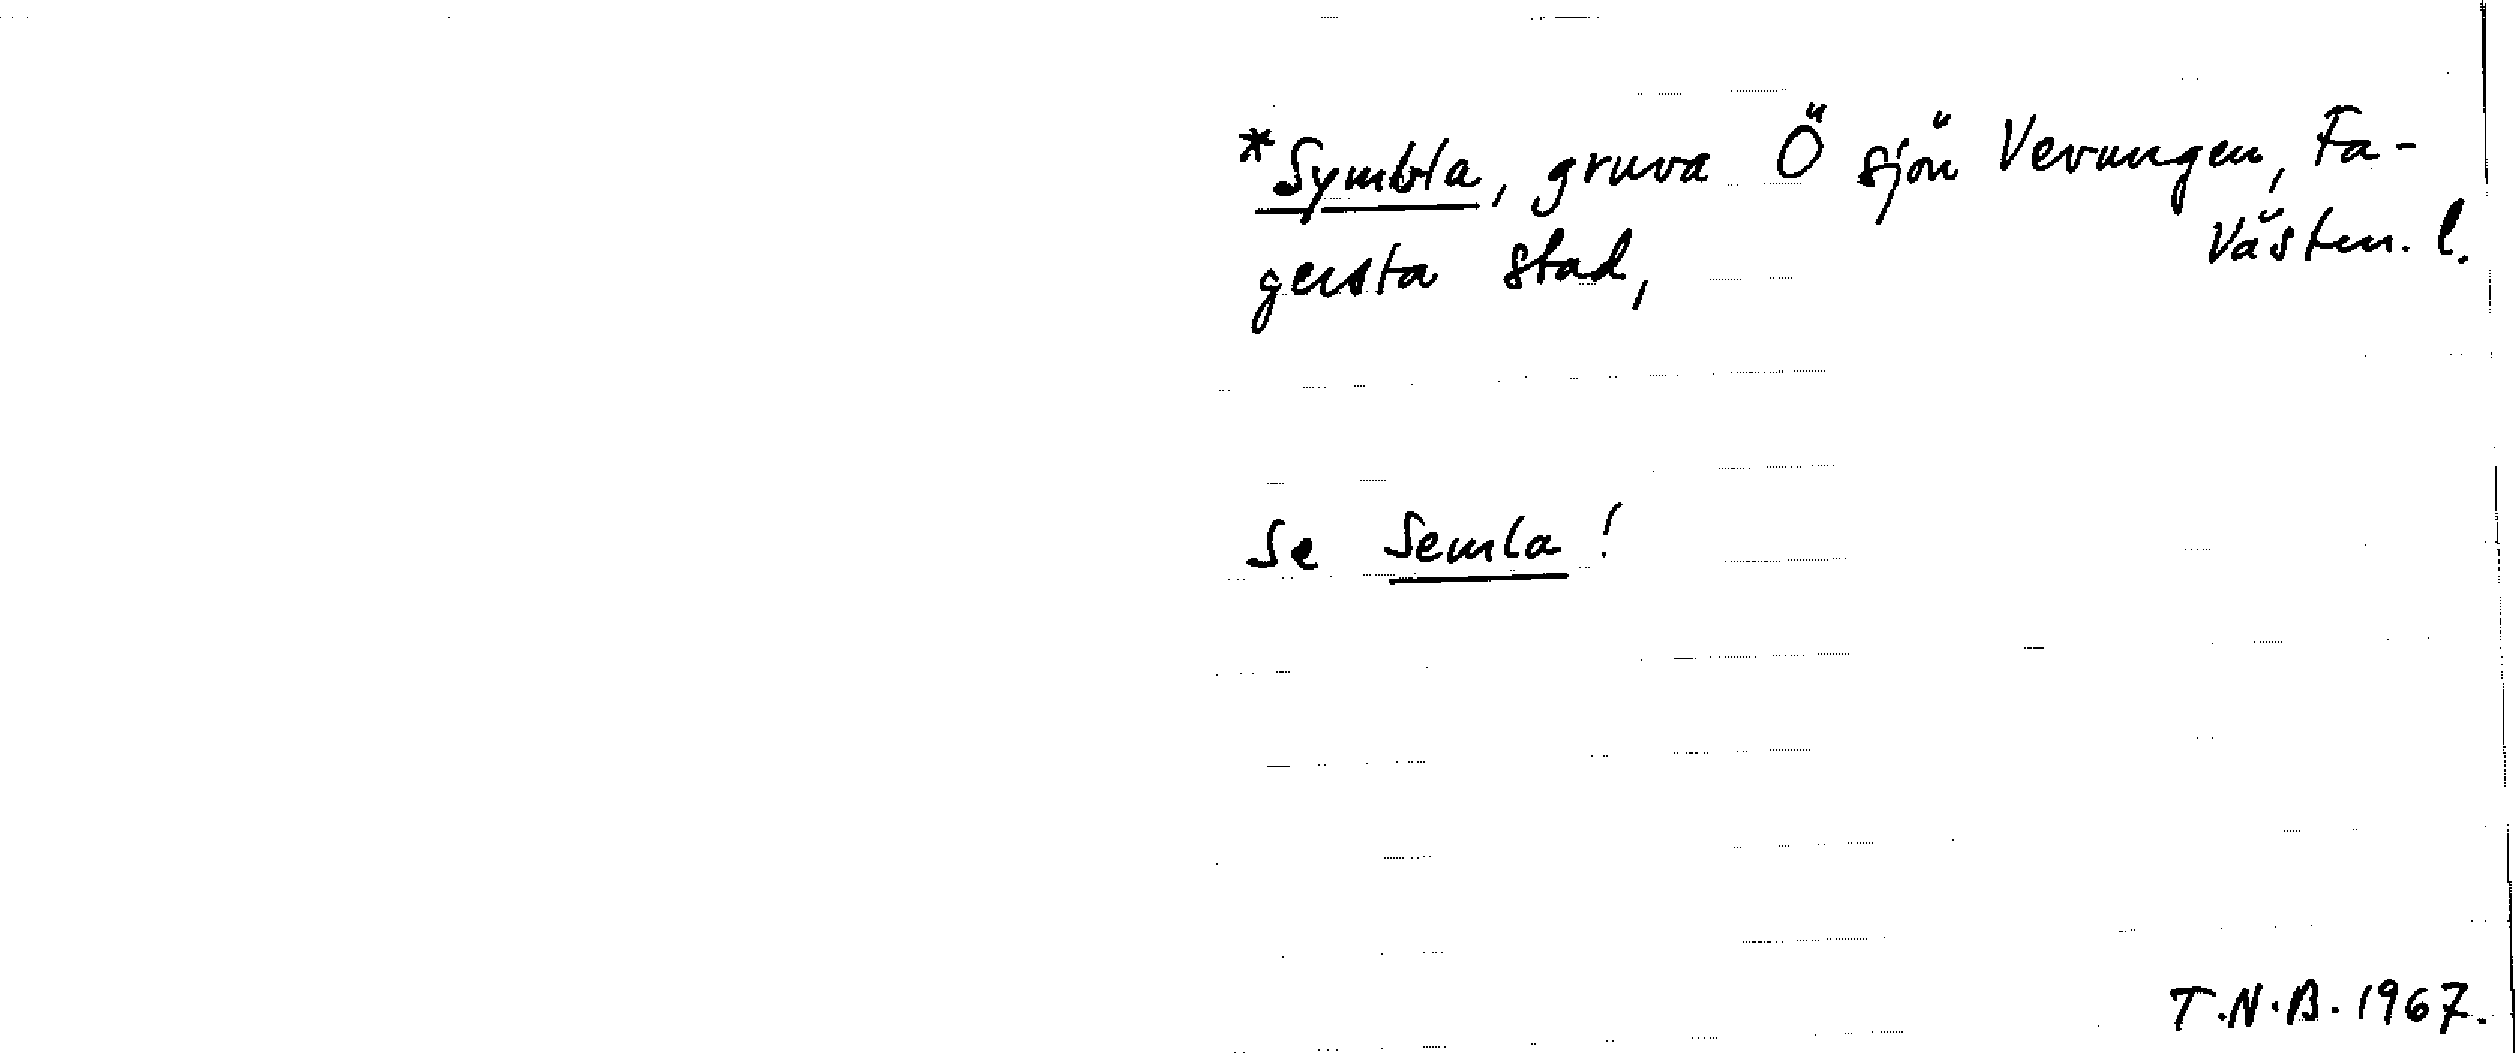 *Symbla, gruva Ö sjön Vevungen, Fa-
gersta stad, Västm. l.
Se Semla!
T.N.B. 1967.